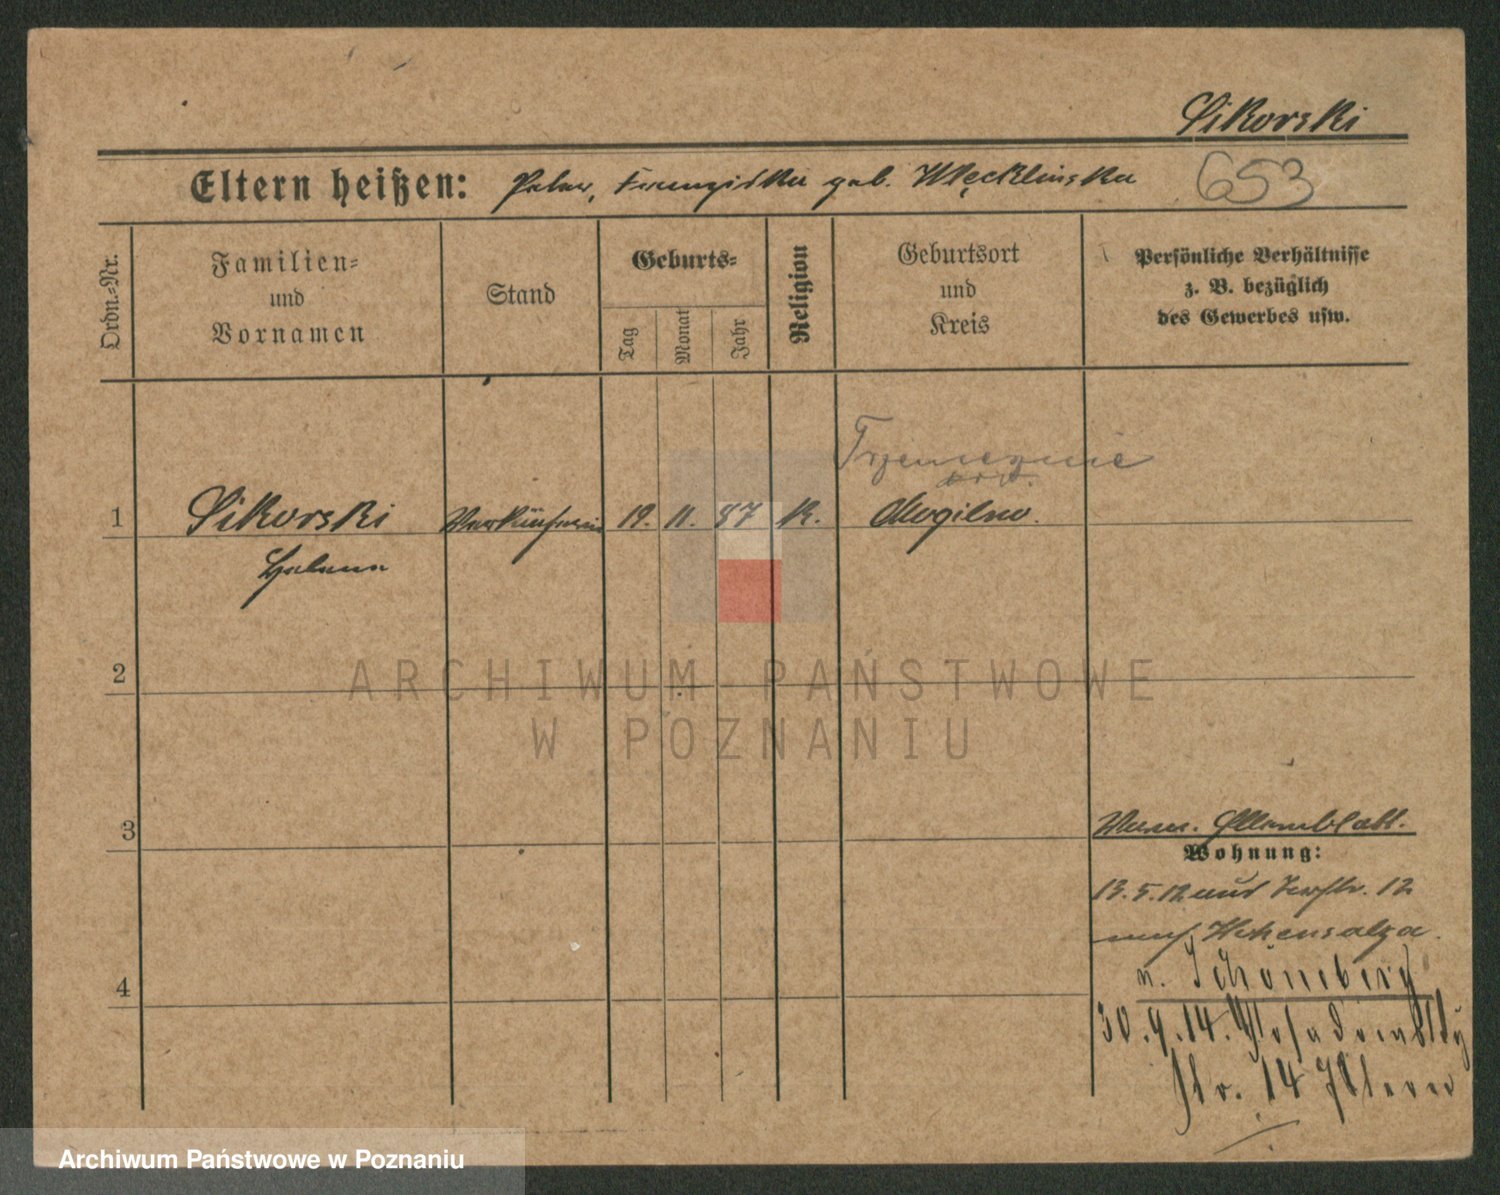 Sikorski
Eltern heißen: Peter, Franziska geb. Węcklinska
653
Ordn.-Nr.
Familien-
und
Vornamen
Stand
Geburts-
Tag
Monat
Jahr
Religion
Geburtsort
und
Kreis
Persönliche Verhältnisse
z. B. bezüglich
des Gewerbes usw.
1
Sikorski
Helene
Verkäuferin
19. 11. 87
K.
Mogilno.
2
ARCHIWUM PAŃSTWOWE
W POZNANIU
3
Wohnung:
13.5.12 aus 12
nach Hohensalza.
4
n. Schöneberg
30.9.14.
str. 14
Archiwum Państwowe w Poznaniu